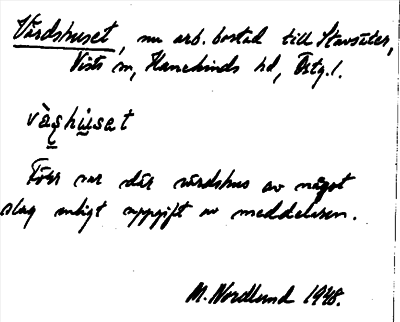 Värdshuset, nu arb. bostad till Stavsäter,
Vists sn, Hanekinds hd, Östg.l.
vàsḥụ̀sat
Förr var där värdshus av något
slag enligt uppgift av meddelaren.
M. Nordlund 1948.